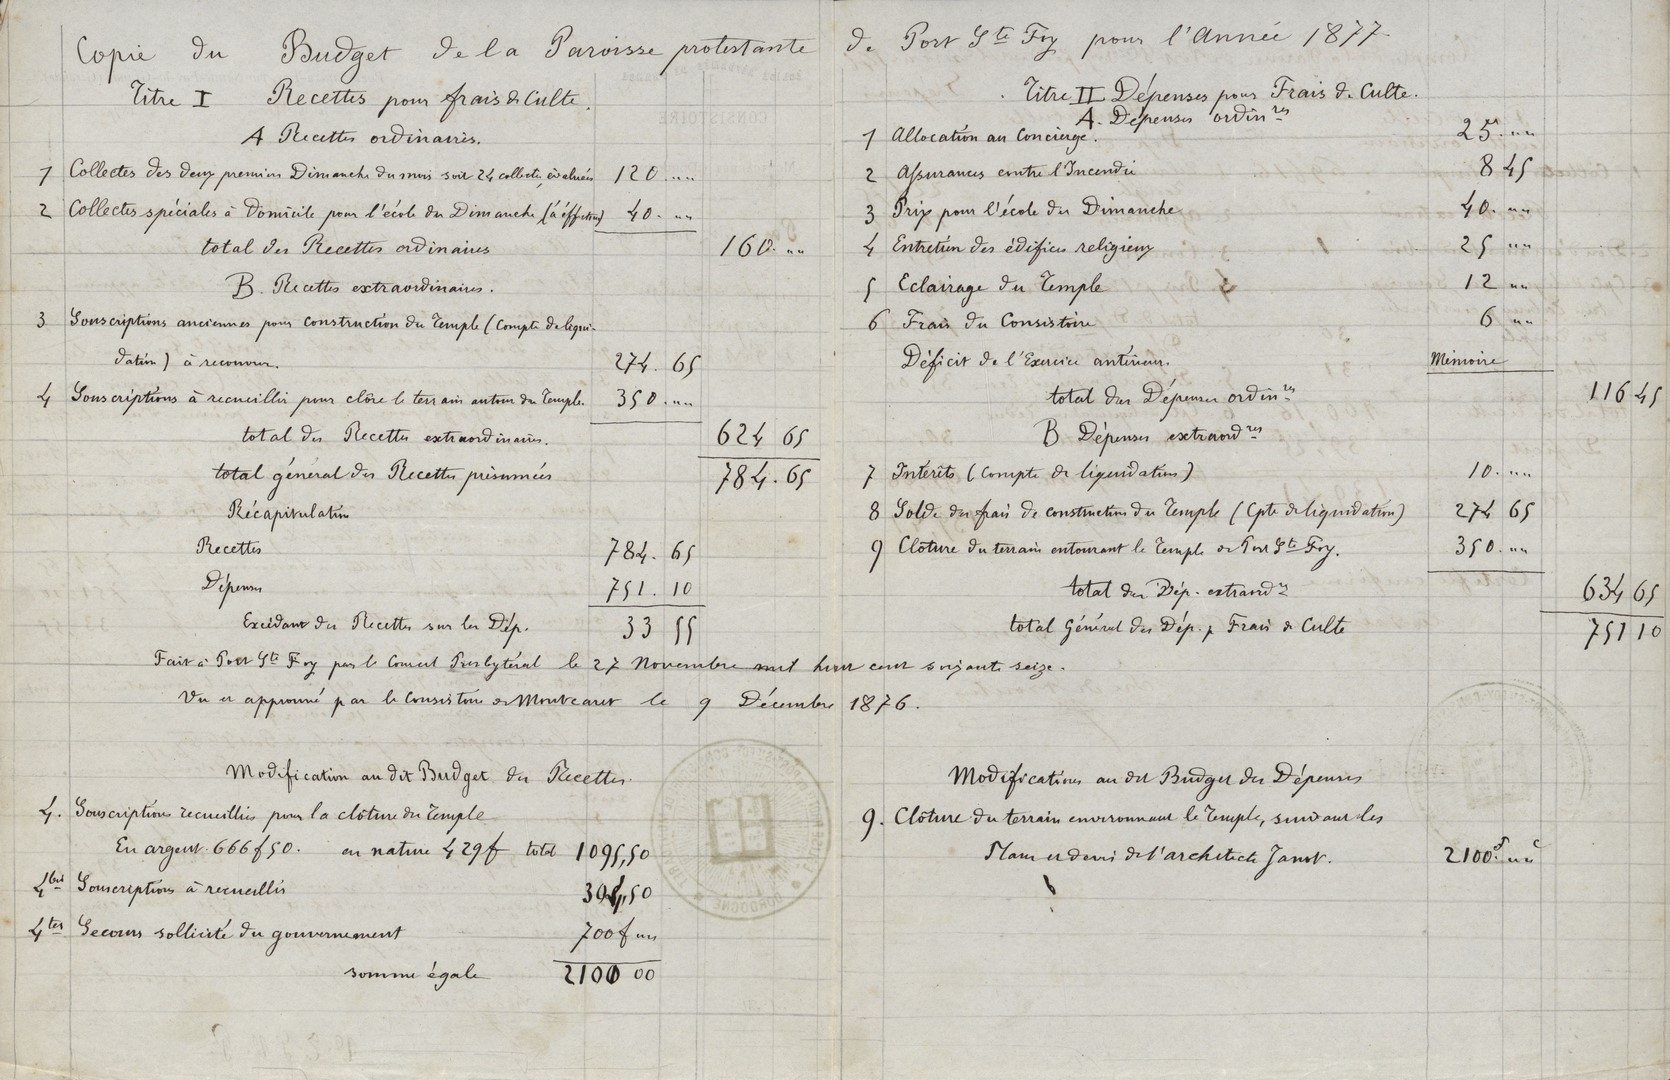 Copie du Budget de la Paroisse protestante de Port Ste Foy pour l'Année 1877
Titre I Recettes pour frais de Culte.
A Recettes ordinaires.
1 Collectes des deux premiers Dimanche du mois soit 24 collectes évaluées 120. " "
2 Collectes spéciales à domicile pour l'école du Dimanche (à effectuer) 40. " "
total des Recettes ordinaires 160. " "
B. Recettes extraordinaires.
3 Souscriptions anciennes pour construction du Temple (Compte de liqui-
dation) à recouvrer. 274. 65
4 Souscriptions à recueillir pour clôre le terrain autour du Temple. 350. " "
total des Recettes extraordinaires. 624 65
total général des Recettes présumées 784. 65
Récapitulation
Recettes 784. 65
Dépenses 751. 10
Excédant des Recettes sur les Dép. 33 55
Titre II Dépenses pour Frais de Culte.
A. Dépenses ordinres
1 Allocation au Concierge. 25. " "
2 Assurances contre l'Incendie 8 45
3 Prix pour l'école du Dimanche 40. " "
4 Entretien des édifices religieux 25 " "
5 Eclairage du Temple 12 " "
6 Frais du Consistoire 6 " "
Déficit de l'Exercice antérieur. Mémoire
total des Dépenses ordinres 116 45
B Dépenses extraordres
7 Intérêts (Compte de liquidation) 10. " "
8 Solde des frais de construction du Temple (Cpte de liquidation) 274 65
9 Clôture du terrain entourant le Temple de Port Ste Foy. 350. " "
total des Dép. extraord 634 65
total Général des Dép. p Frais de Culte 751 10
Fait à Port Ste Foy par le Conseil Presbytéral le 27 Novembre mil huit cent soixante seize.
Vu et approuvé par le Consistoire de Montcaret le 9 Décembre 1876.
Modification au dit Budget des Recettes.
4. Souscriptions recueillies pour la clôture du Temple
En argent 666f50. en nature 429f total 1095,50
4bis Souscriptions à recueillir 304,50
4ter Secours sollicité du gouvernement 700f " "
somme égale 2100 00
Modifications au dit Budget des Dépenses
9. Clôture du terrain environnant le Temple, suivant les
Plans et devis de l'architecte Janot. 2100f " "c
DORDOGNE